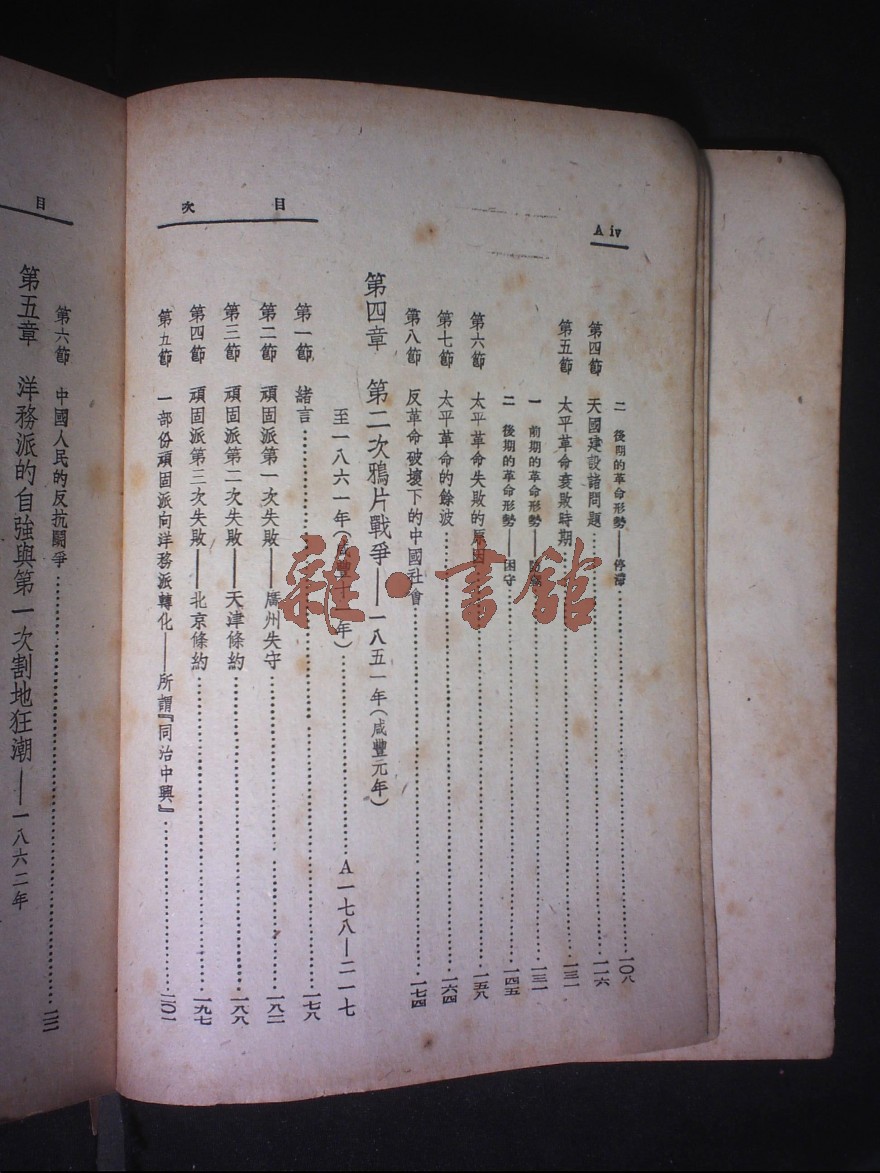 目 次
A iv
二 後期的革命形勢——停滯……一〇八
第四節 天國建設諸問題……一一六
第五節 太平革命衰敗時期……一三一
一 前期的革命形勢——……一三一
二 後期的革命形勢——困守……一四五
第六節 太平革命失敗的原因……一五八
第七節 太平革命的餘波……一六四
第八節 反革命破壞下的中國社會……一七四
第四章 第二次鴉片戰爭——一八五一年(咸豐元年)
至一八六一年(咸豐十一年)……A一七八—二一七
第一節 諸言……一七八
第二節 頑固派第一次失敗——廣州失守……一八二
第三節 頑固派第二次失敗——天津條約……一八八
第四節 頑固派第三次失敗——北京條約……一九七
第五節 一部份頑固派向洋務派轉化——所謂『同治中興』……二〇一
目
第六節 中國人民的反抗鬭爭……二一一
第五章 洋務派的自強與第一次割地狂潮——一八六二年
雜·書館